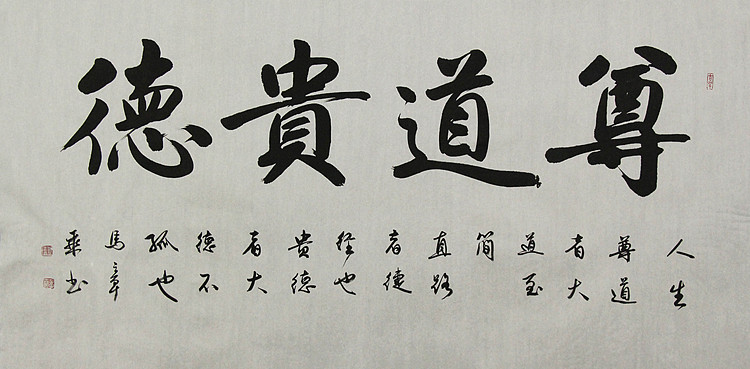 尊道貴德
人生
尊道
者大
道至
簡
直路
者捷
徑也
貴德
者大
德不
孤也
馬章
乘书